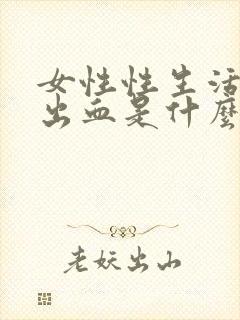 女性性生活
出血是什麼
老妖出山